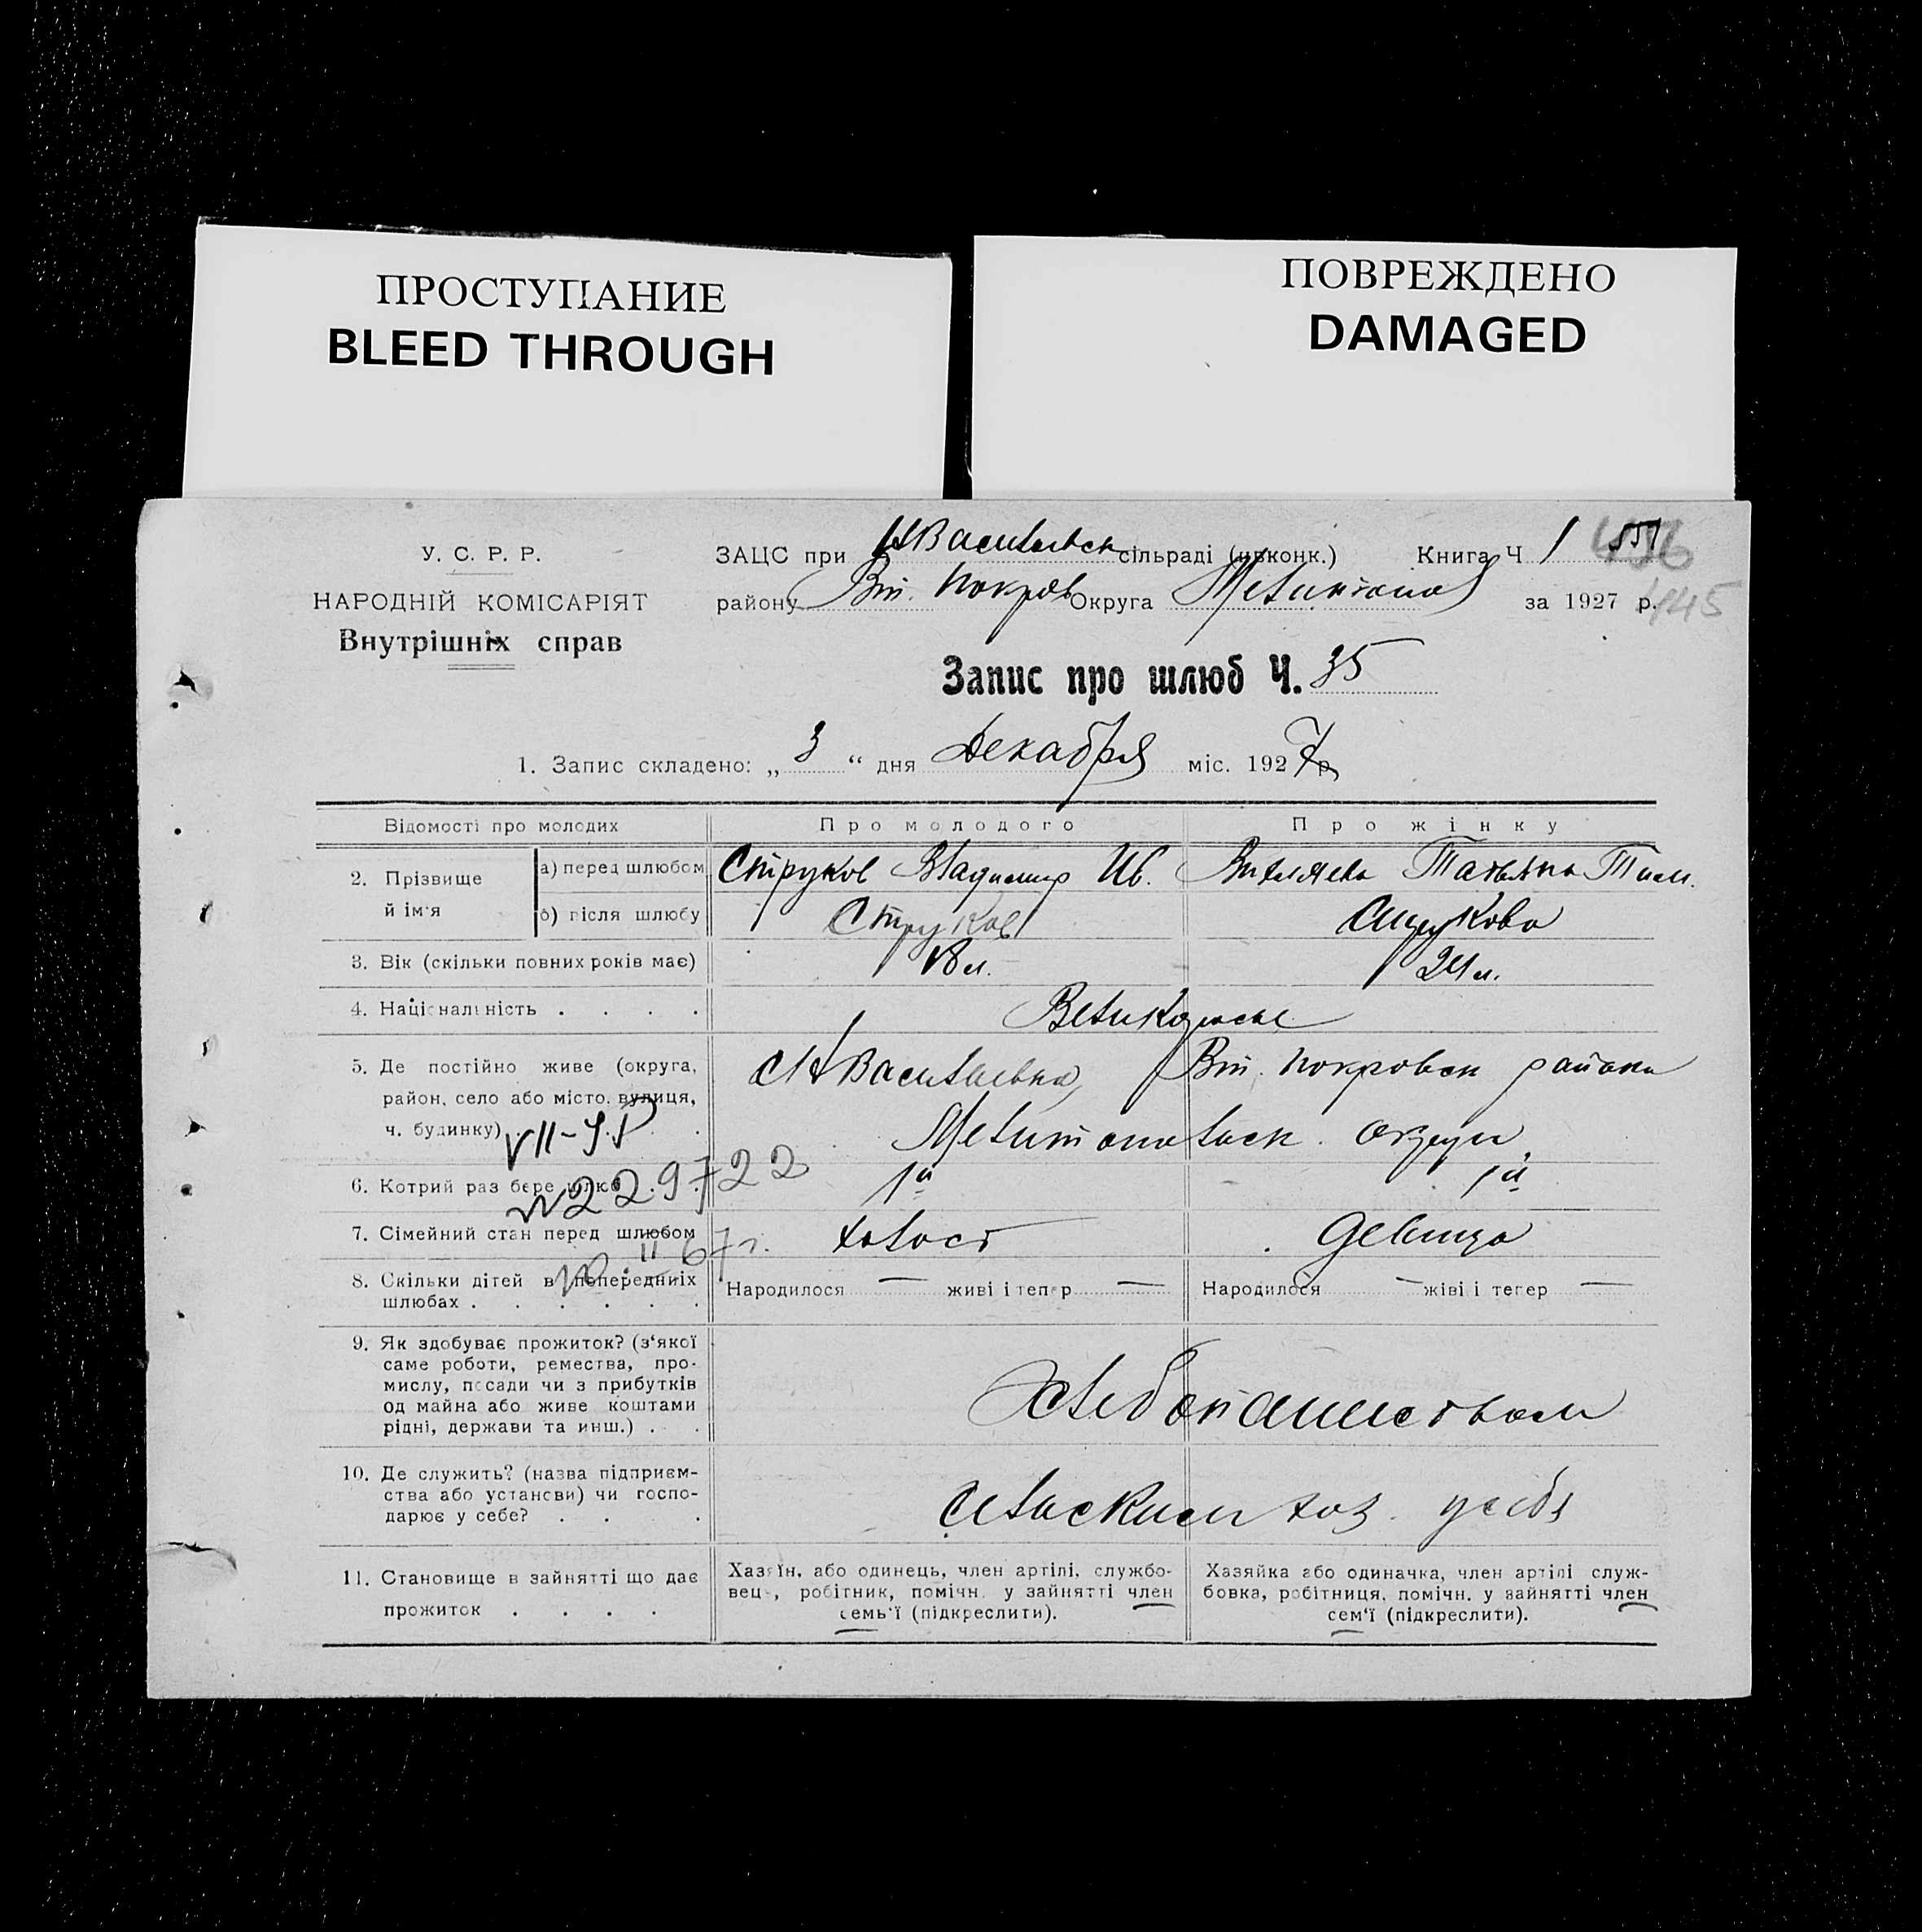 ПРОСТУПАНИЕ
BLEED THROUGH
ПОВРЕЖДЕНО
DAMAGED
У. С. Р. Р.
НАРОДНІЙ КОМІСАРІЯТ
Внутрішніх справ
ЗАЦС при НВасильевск сільраді (цвконк.) Книга Ч 1
району Вт. Покров Округа Мелитопол за 1927 р.
445
Запис про шлюб Ч. 35
1. Запис складено: „ 3 “ дня Декабря міс. 1927 р.
Відомості про молодих
Про молодого
Про жінку
2. Прізвище й ім'я
а) перед шлюбом
Струков Владимир Ив.
Татьяна Тим.
б) після шлюбу
Струков
Струкова
3. Вік (скільки повних років має)
18 л.
24 л.
4. Національність . . . .
Великорусы
5. Де постійно живе (округа,
район, село або місто, вулиця,
ч. будинку) .
с НВасильевка, Вт. Покровск района
Мелитопольск. округи
VII-ЯР
№ 229722
6. Котрий раз бере шлюб . .
1й
1й
7. Сімейний стан перед шлюбом
холост
девица
67 г.
8. Скільки дітей в попередніх
шлюбах . . . . . .
Народилося — живі і тепер —
Народилося — жіві і тепер —
9. Як здобуває прожиток? (з‘якої
саме роботи, ремества, про-
мислу, посади чи з прибутків
од майна або живе коштами
рідні, держави та инш.) . .
Хлебопашеством
10. Де служить? (назва підприєм-
ства або установи) чи госпо-
дарює у себе? . . .
сельским хоз. у себя
11. Становище в зайнятті що дає
прожиток . . . .
Хазяїн, або одинець, член артілі, службо-
вець, робітник, помічн. у зайнятті член
семь‘ї (підкреслити).
Хазяйка або одиначка, член артілі служ-
бовка, робітниця, помічн. у зайнятті член
сем‘ї (підкреслити).